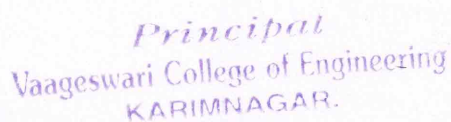 Principal
Vaageswari College of Engineering
KARIMNAGAR.